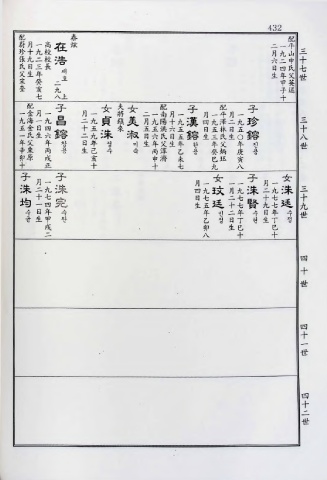 432
三十七世
配平山申氏父英近
一九二四年甲子十
二月六日生
泰詮
在浩 재호
二九八上
高校校長
一九二三年癸亥七
月十九日生
配蔚珍張氏父寅奎
三十八世
子珍鎔 진용
一九五〇年庚寅八
月二日生
配平澤林氏父炳珏
一九五三年癸巳九
月四日生
子漢鎔 한용
一九五五年乙未七
月十六日生
配南陽洪氏父淳濟
一九五六年丙申十
二月五日生
女美淑 미숙
夫將頭來
女貞洙 정수
一九五九年己亥十
二月二十二日生
子昌鎔 창용
一九四六年丙戌正
月一日生
配金海金氏父東原
一九五一年辛卯十
三十九世
女洙廷 수정
一九七七年丁巳十
月二十九日生
子洙賢 수현
一九七七年丁巳十
月二十二日生
女玟廷
一九七五年乙卯八
月四日生
子洙宛 수완
一九七四年甲寅二
月二十一日生
子洙均 수균
四十世
四十一世
四十二世